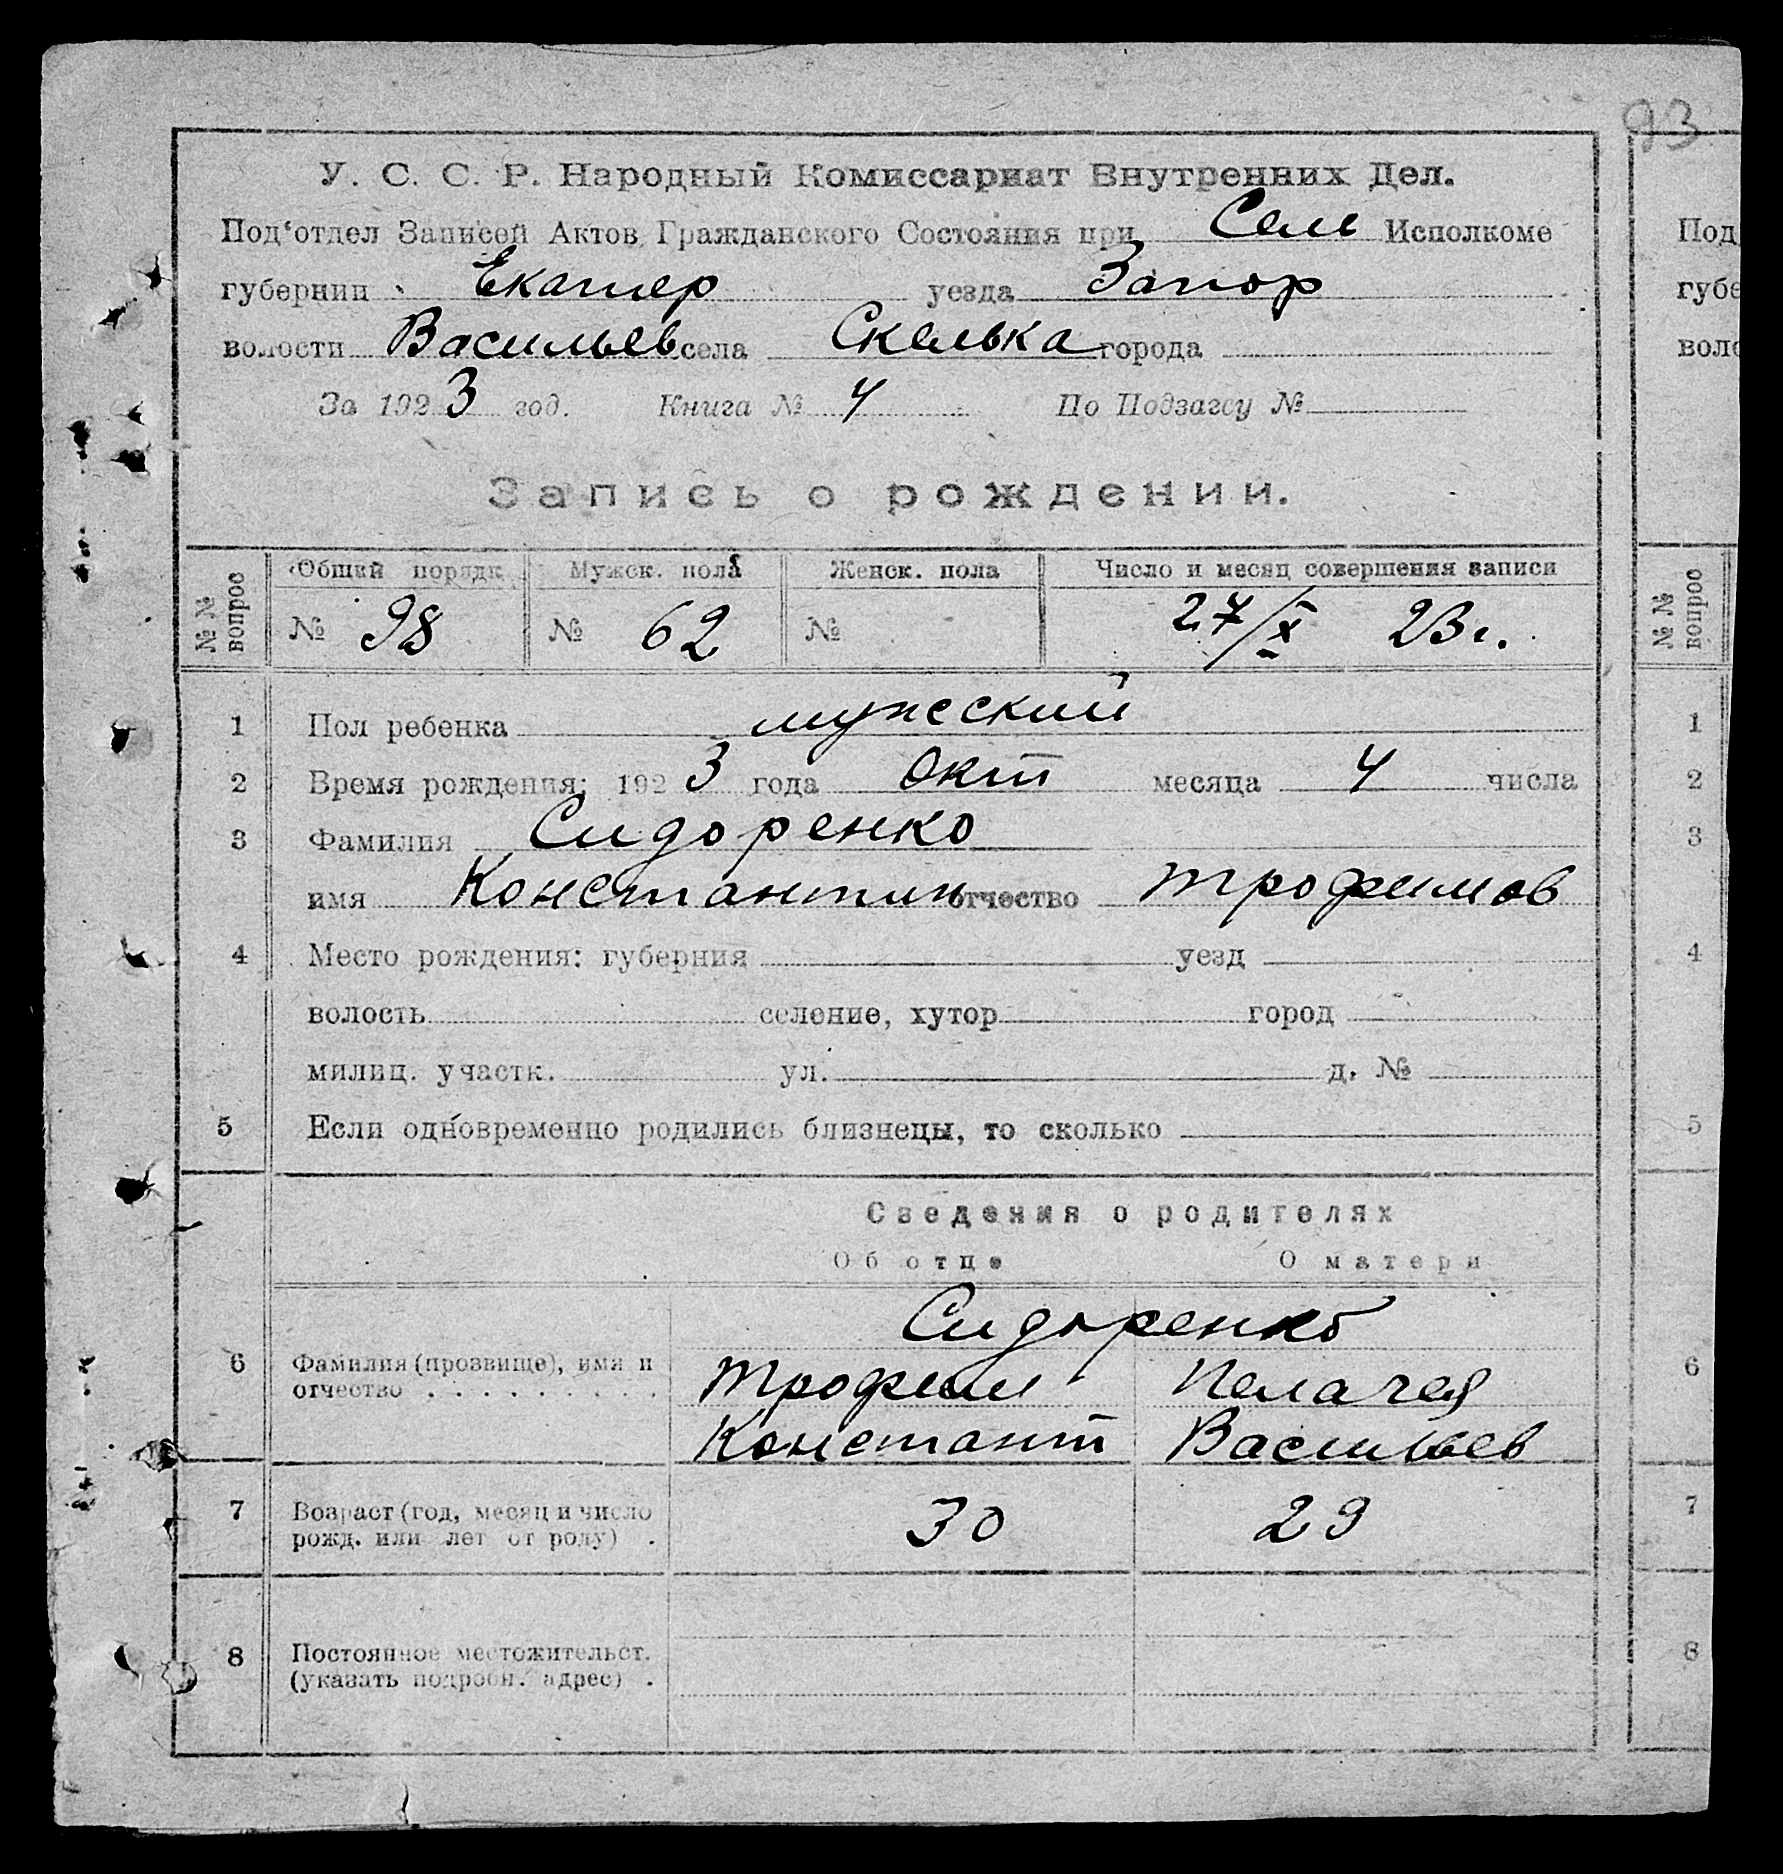 93
У. С. С. Р. Народный Комиссариат Внутренних Дел.
Под‘отдел Записей Актов Гражданского Состояния при Селе Исполкоме
губернии Екатер уезда Запор
волости Васильев села Скелька города
За 1923 год. Книга № 4 По Подзагсу №
Запись о рождении.
№ № вопрос Общий порядк Мужск. пола Женск. пола Число и месяц совершения записи
№ 98 № 62 № 27/X 23 г.
1 Пол ребенка мужеский
2 Время рождения: 1923 года Окт месяца 4 числа
3 Фамилия Сидоренко
имя Константин отчество Трофимов
4 Место рождения: губерния уезд
волость селение, хутор город
милиц. участк. ул. д. №
5 Если одновременно родились близнецы, то сколько
Сведения о родителях
Об отце О матери
Сидоренко
6 Фамилия (прозвище), имя и Трофим Пелагея
отчество . . . . . . . . . Констант Васильев
7 Возраст (год, месяц и число 30 29
рожд. или лет от роду) .
8 Постоянное местожительст.
(указать подробн. адрес) .
Под
губе
воло
№ № вопрос
1
2
3
4
5
6
7
8